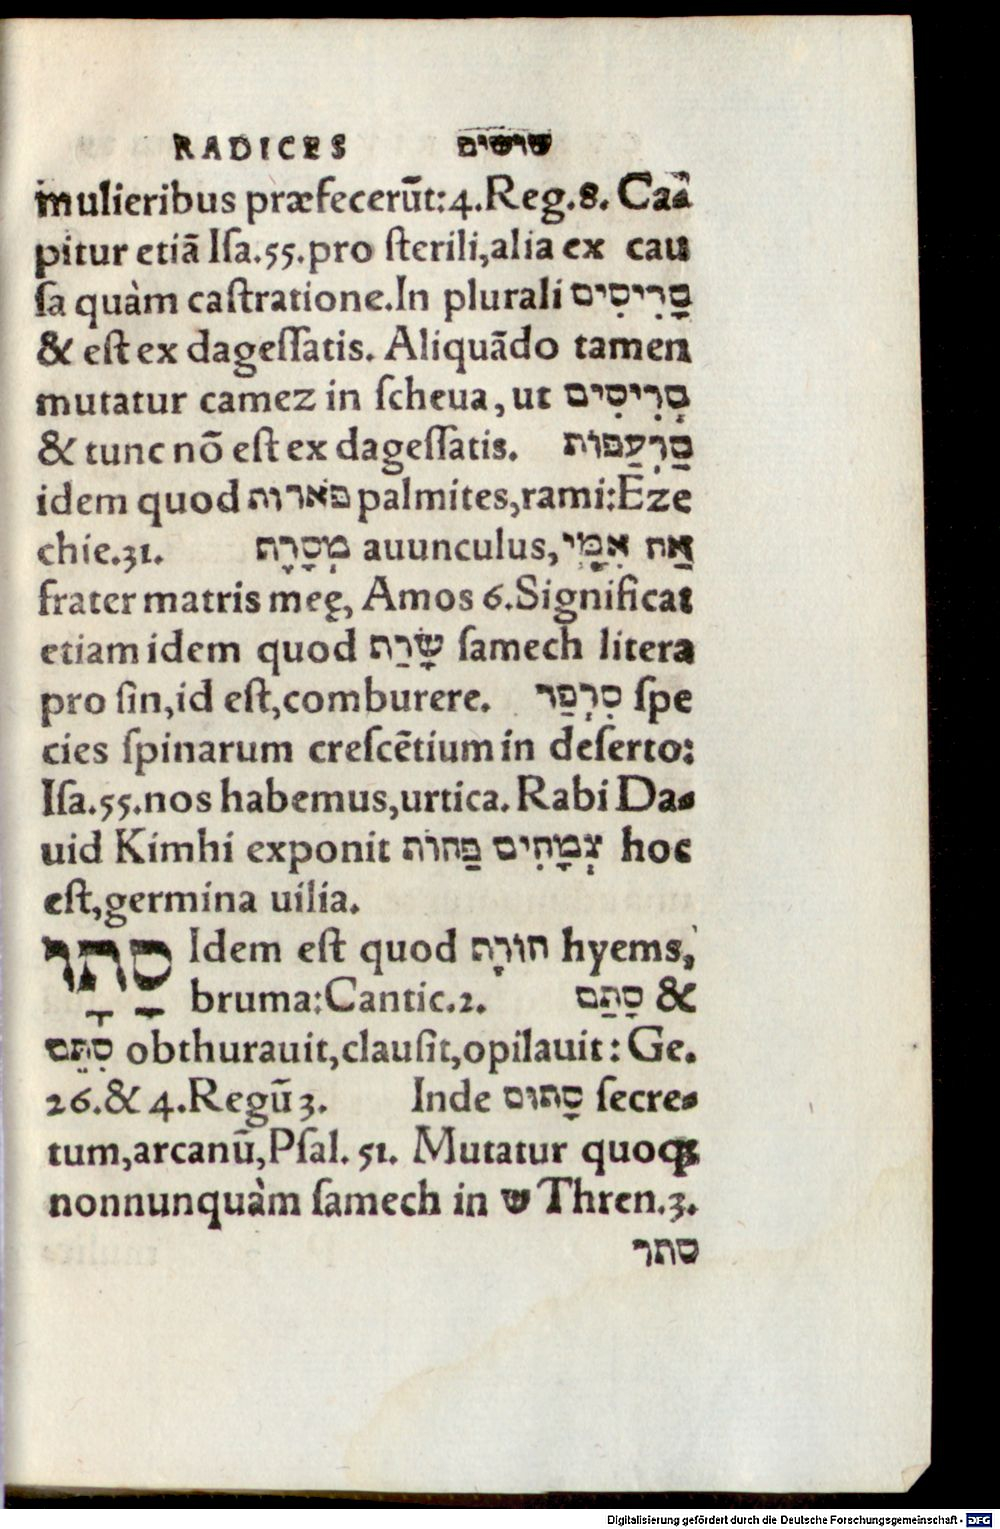 RADICES שושים
mulieribus præfecerūt:4.Reg.8. Caa
pitur etiā Iſa.55.pro ſterili,alia ex cau
ſa quàm caſtratione.In plurali סָרִיסִים
& eſt ex dageſſatis. Aliquādo tamen
mutatur camez in ſcheua, ut סְרִיסִים
& tunc nō eſt ex dageſſatis. סַרְעַפּוֹת
idem quod פֹּארוֹת palmites,rami:Eze
chie.31. מְסָרֶף auunculus, אֲחִי אִמִּי
frater matris meę, Amos 6.Significat
etiam idem quod שָׂרַף ſamech litera
pro ſin,id eſt,comburere. סִרְפַּד ſpe
cies ſpinarum creſcētium in deſerto:
Iſa.55.nos habemus,urtica. Rabi Da-
uid Kimhi exponit צְמָחִים פַּחוֹת hoc
eſt,germina uilia.
סְתָו Idem eſt quod חוֹרֶף hyems,
bruma:Cantic.2. סָתַם &
סִתֵּם obthurauit,clauſit,opilauit: Ge.
26.& 4.Regū 3. Inde סָתוּם ſecre-
tum,arcanū,Pſal. 51. Mutatur quoqꝫ
nonnunquàm ſamech in ש Thren.3.
סתר